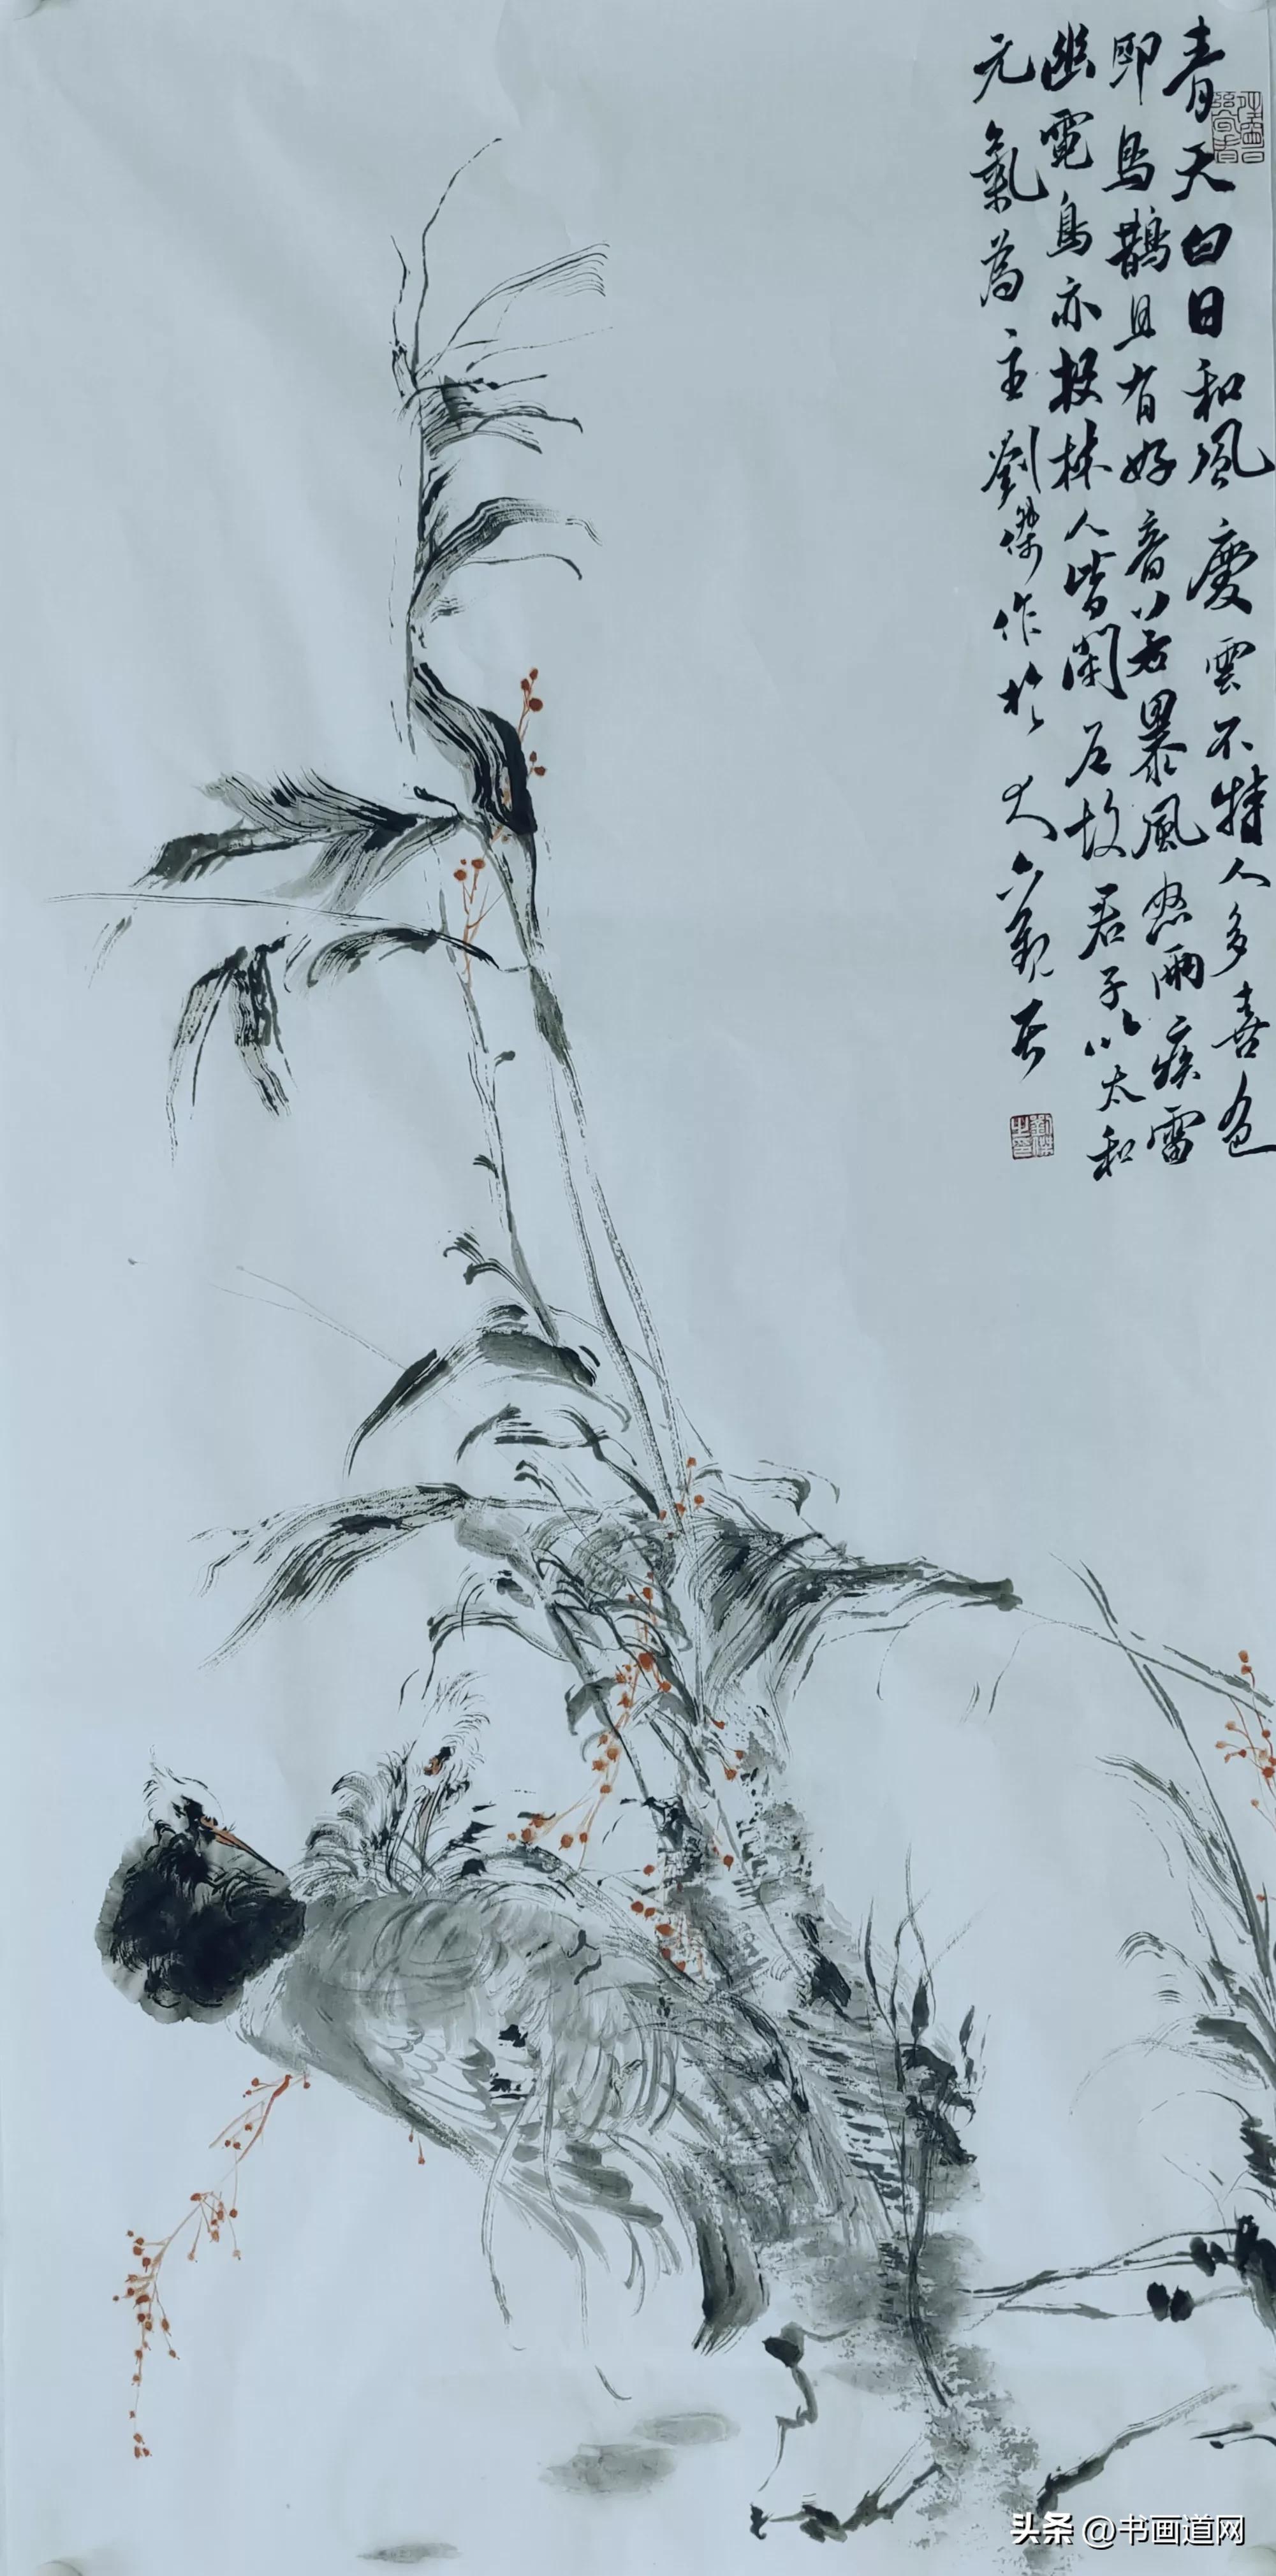 青天白日和風慶雲不特人多喜色
即鳥鵲且有好音若暴風怒雨疾雷
幽電鳥亦投林人皆閉户故君子以太和
元氣為主劉傑作於
劉傑之印
头条 @书画道网